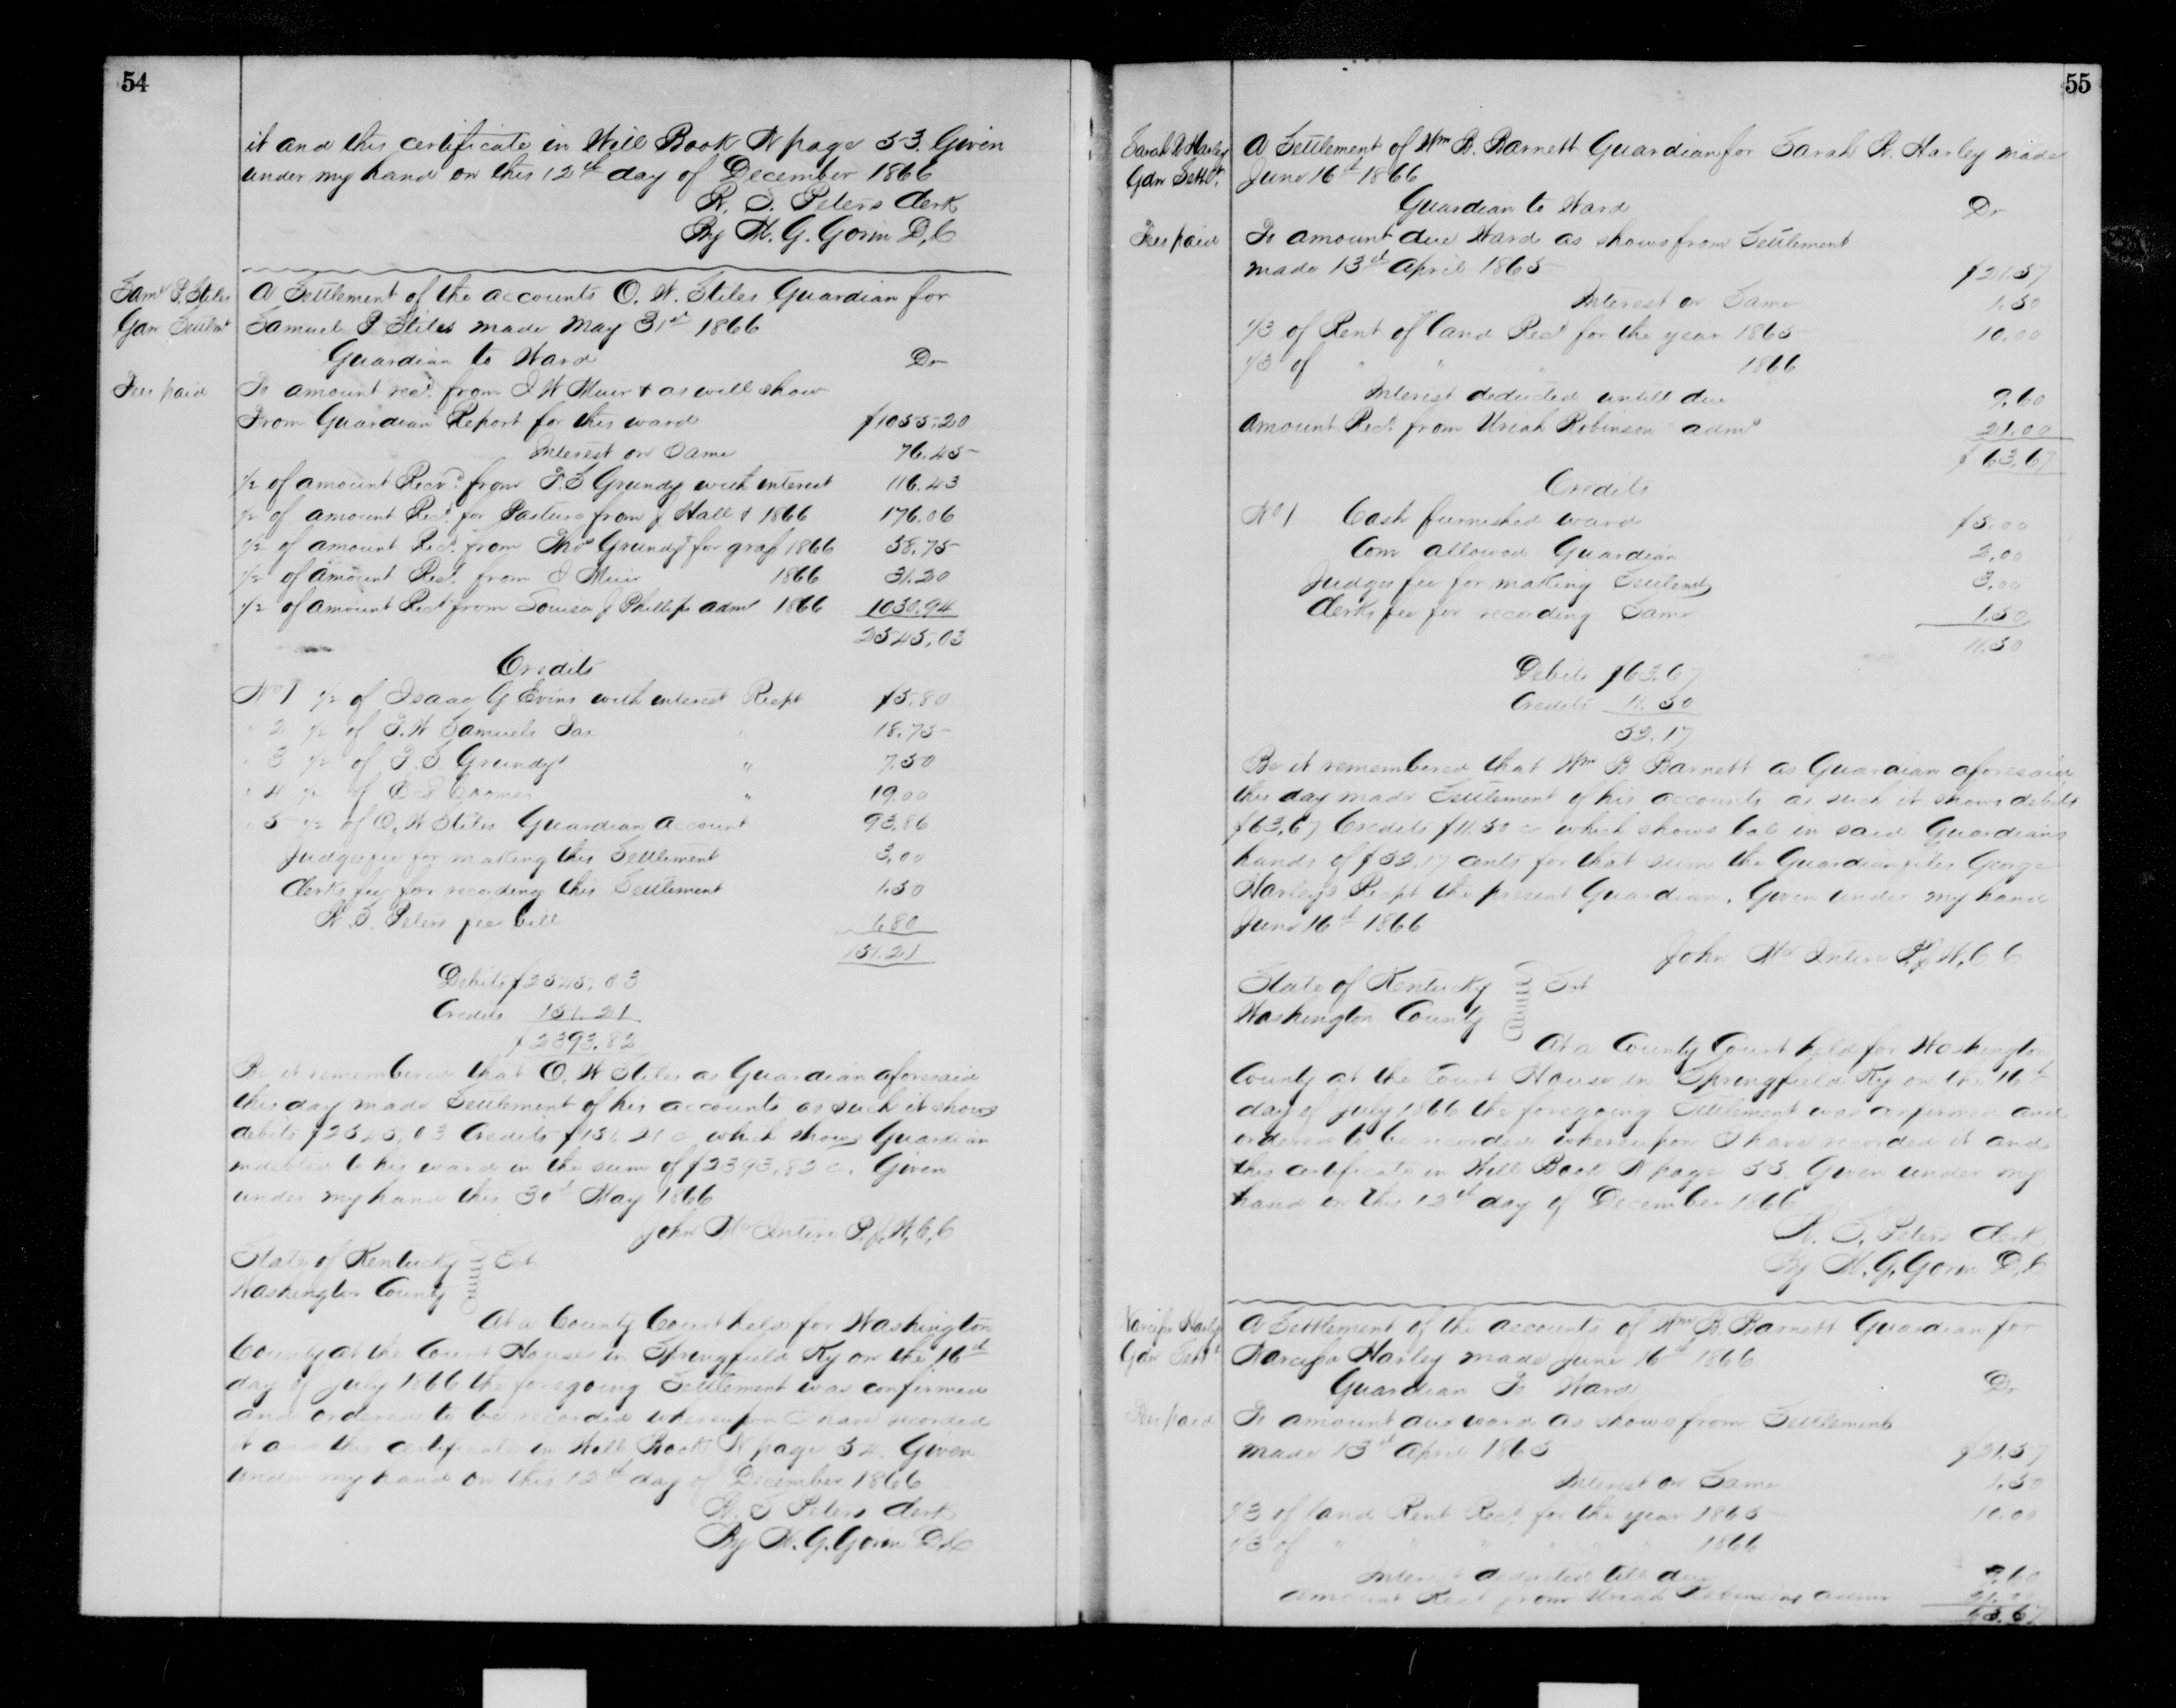 54
it and this certificate in Will Book N page 53. Given
under my hand on this 12th day of December 1866
R. S. Peters Clerk
By H. G. Gorin D.C
Saml P. Stiles
Gdn Settmt
Fees paid
A Settlement of the accounts O. W. Stiles Guardian for
Samuel P Stiles made May 31st 1866
Guardian to Ward Dr
To amount recd. from J W Muir & as will show
From Guardian Report for this ward $1055.20
Interest on Same 76.45
1/2 of amount Recvd from F. S Grundy with interest 116.43
1/2 of amount Recd for Pasture from J Hall & 1866 176.06
1/2 of amount Recd. from Thos Grundy for graf 1866 58.75
1/2 of amount Recd. from J Muir 1866 31.20
1/2 of amount Recd from Louisa J Phillips admr 1866 1030.94
2545.03
Credits
No 1 1/2 of Isaac G Evins with interest Recpt $5.80
" 2 1/2 of T. W Samuels Tax " 18.75
" 3 1/2 of F. S Grundys " 7.50
" 4 1/2 of " 19.00
" 5 1/2 of O. W Stiles Guardian Account 93.86
Judges fee for making this Settlement 3.00
Clerks fee for recording this Settlement 1.50
R. S. Peters fee bill 1.80
151.21
Debits $2545.03
Credits 151.21
$2393.82
Be it remembered that O. W Stiles as Guardian aforesaid
this day made Settlement of his accounts as such it shows
debits $2545.03 Credits $151.21 c which shows Guardian
indebted to his ward in the sum of $2393.82 c. Given
under my hand this 30th May 1866
John McIntire P.J.W.C.C
State of Kentucky Sct
Washington County
At a County Court held for Washington
County at the Court House in Springfield Ky on the 16th
day of July 1866 the foregoing Settlement was confirmed
and ordered to be recorded whereupon I have recorded
it and this certificate in Will Book N page 54. Given
under my hand on this 12th day of December 1866
R. S Peters Clerk
By H. G. Gorin D.C
55
Sarah R Harley
Gdn Settlt.
Fees paid
A Settlement of Wm B. Barnett Guardian for Sarah R. Harley made
June 16th 1866
Guardian to Ward Dr
To amount due Ward as shows from Settlement
made 13th April 1865 $21.57
Interest on Same 1.50
1/3 of Rent of land Recd for the year 1865 10.00
1/3 of " " " 1866
Interest deducted untill due 9.60
Amount Recd. from Uriah Robinson admr 21.00
$63.67
Credits
No 1 Cash furnished ward $5.00
Com allowed Guardian 2.00
Judges fee for making Settlemt 3.00
Clerks fee for recording Same 1.50
11.50
Debits $63.67
Credits 11.50
52.17
Be it remembered that Wm B Barnett as Guardian aforesaid
this day made Settlement of his accounts as such it shows debits
$63.67 Credits $11.50 c which shows bal in said Guardians
hands of $52.17 cents for that sum the Guardian files George
Harleys Recpt the present Guardian. Given under my hand
June 16th 1866
John McIntire P.J.W.C.C
State of Kentucky Sct
Washington County
At a County Court held for Washington
County at the Court House in Springfield Ky on the 16th
day of July 1866 the foregoing Settlement was confirmed and
ordered to be recorded whereupon I have recorded it and
this certificate in Will Book N page 55. Given under my
hand on this 12th day of December 1866
R. S. Peters Clerk
By H. G. Gorin D.C
Narcissa Harley
Gdn Settt
Fees paid
A Settlement of the accounts of Wm B. Barnett Guardian for
Narcissa Harley made June 16th 1866
Guardian To Ward Dr
To amount due ward as shows from Settlement
made 13th April 1865 $21.57
Interest on Same 1.50
1/3 of land Rent Recd. for the year 1865 10.00
1/3 of " " " " " " 1866
Interest deducted till due 9.60
Amount Recd from Uriah Robinsons admr 21.00
63.67